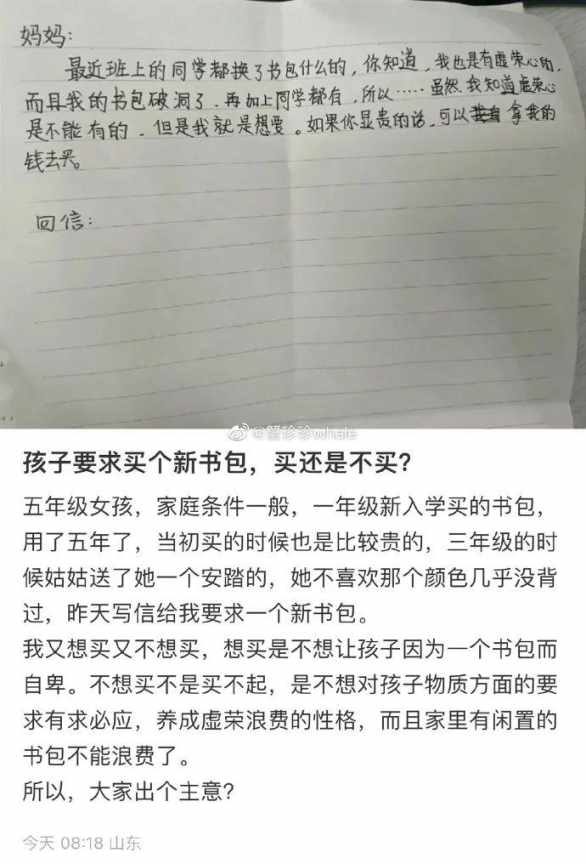 妈妈:
最近班上的同学都换了书包什么的,你知道,我也是有虚荣心的,
而且我的书包破洞了,再加上同学都有,所以……虽然我知道虚荣心
是不能有的,但是我就是想要。如果你显贵的话,可以拿我的
钱去买。
回信:
@蟹珍珍whale
孩子要求买个新书包,买还是不买?
五年级女孩,家庭条件一般,一年级新入学买的书包,
用了五年了,当初买的时候也是比较贵的,三年级的时
候姑姑送了她一个安踏的,她不喜欢那个颜色几乎没背
过,昨天写信给我要求一个新书包。
我又想买又不想买,想买是不想让孩子因为一个书包而
自卑。不想买不是买不起,是不想对孩子物质方面的要
求有求必应,养成虚荣浪费的性格,而且家里有闲置的
书包不能浪费了。
所以,大家出个主意?
今天 08:18 山东